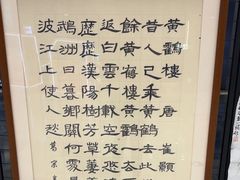 黃鶴樓 唐 崔顥
昔人已乘黃鶴去此
餘黃鶴樓黃鶴一去
返白雲千載空悠悠
歷歷漢陽樹芳草萋萋
鵡洲日暮鄉關何處是
波江上使人愁